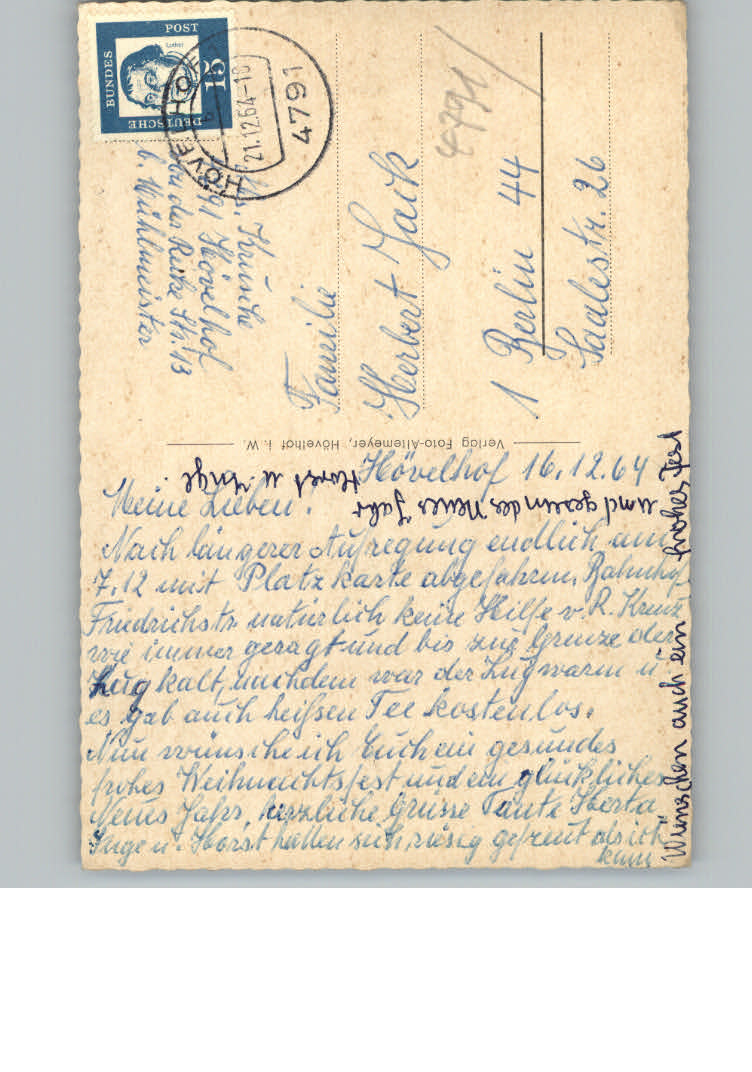 Hövelhof 16.12.64
Meine Lieben!
Nach längerer Aufregung endlich am
7.12 mit Platzkarte abgefahren, Bahnhof
Friedrichstr. natürlich keine Hilfe v. R. Kreuz
wie immer gesagt und bis zur Grenze der
Zug kalt, nachdem war der Zug warm u.
es gab auch heißen Tee kostenlos.
Nun wünsche ich Euch ein gesundes
frohes Weihnachtsfest und ein glückliches
Neues Jahr, herzliche Grüsse Tante Herta
Inge u. Horst hatten sich riesig gefreut als ich
kam
Wünschen auch ein frohes Fest
und gesundes Neues Jahr
Horst u. Inge.
Verlag Foto-Altemeyer, Hövelhof i. W.
DEUTSCHE
BUNDES
POST
Luther
15
HÖVELHOF
21.12.64-18
4791
Krusche
4791 Hövelhof
Von der Recke Str. 13
b. Mühlmeister
Familie
Herbert Jack
4791/
1 Berlin 44
Saalestr. 26